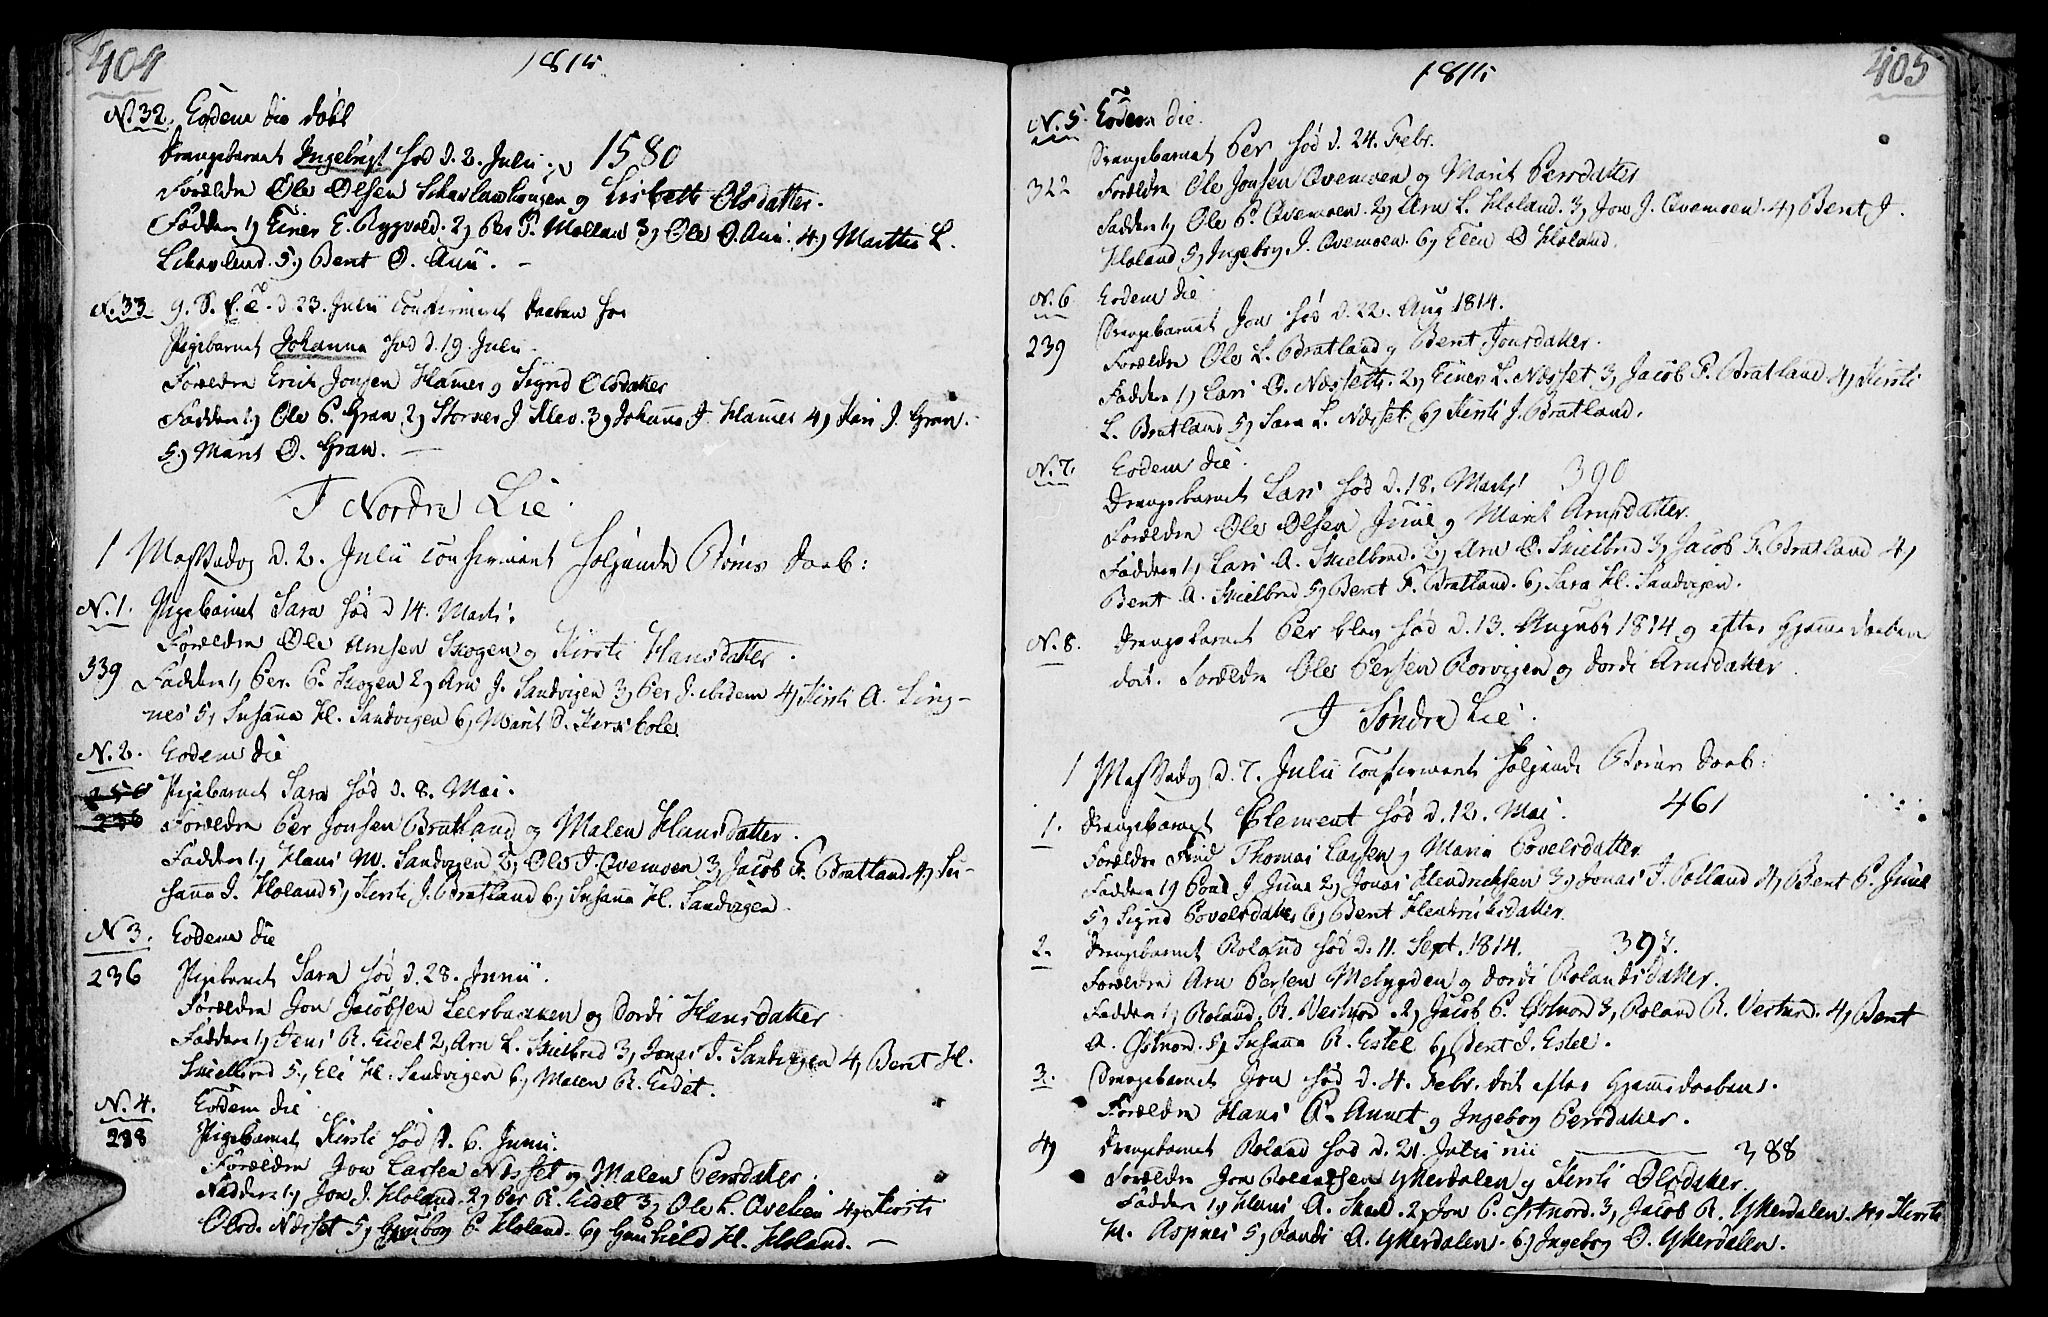 404
1815
N. 32. Eodem die døbt
Drengebarnet Ingebrigt fød d. 2. Julii. 1580
Forældre Ole Olsen og Lisbeth Olsdatter.
Faddere 1, Einer E. Rygvold. 2, Per P. Mollan 3, Ole O. Auu. 4, Marthe L.
5, Bent O. Auu. –
N. 33. 9. S. p. T. d. 23. Julii confirmeret Daaben for
Pigebarnet Johanna fød d. 19. Julii
Forældre Erich Jonsen Hames og Sigrid Olsdatter
Faddere 1, Ole P. Gran. 2, J. Klev. 3, Johanna J. Hames 4, Kari J. Gran.
5, Marit O. Gran. –
I Nordre Lie.
1 Messedag d. 2. Julii confirmeret følgende Børns Daab:
N. 1. Pigebarnet Sara fød d 14. Marts.
Forældre Ole Arnsen Skogen og Kirsti Hansdatter.
339 Faddere 1, Per P. Skogen 2, Arn J. Sandvigen 3, Per J. ibidem 4, Kirsti A. Ling-
nes 5, Susanna H. Sandvigen 6, Marit
N. 2. Eodem die
256 Pigebarnet Sara fød d. 8. Mai.
236 Forældre Per Jonsen Bratland og Malen Hansdatter.
Faddere 1, Hans M. Sandvigen 2, Ole J. Qvemoen 3, Jacob P. Bratland 4, Su-
sanna J. Holand 5, Kirsti J. Bratland 6, Susanna H. Sandvigen
N 3. Eodem die
236 Pigebarnet Sara fød d. 28. Junii.
Forældre Jon Jacobsen Leerbakken og Dordi Hansdatter
Faddere 1, Jens R. Eidet 2, Arn L. Skielbred 3, Jonas J. Sandvigen 4, Bent H.
Skielbred 5, Eli H. Sandvigen 6, Malen R. Eidet.
N. 4. Eodem die
238 Pigebarnet Kirsti fød d. 6. Junii.
Forældre Jon Larsen Næsset og Malen Persdatter.
Faddere 1, Jon J. Holand. 2, Per R. Eidet 3, Ole L. Qvelien 4, Kirsti
Olsd. Næsset 5, Gunbor P. Holand. 6, Gunhild H. Holand. –
405
1815
N. 5. Eodem die.
Drengebarnet Per fød d. 24. Febr.
322 Forældre Ole Jonsen Qvemoen og Marit Persdatter
Faddere 1, Ole P. Qvemoen. 2, Arn L. Holand. 3, Jon J. Qvemoen. 4, Bent J.
Holand 5, Ingeborg J. Qvemoen. 6, Elen O Holand.
N. 6 Eodem die
Drengebarnet Jon fød d. 22. Aug 1814.
239 Forældre Ole L. Bratland og Bent Jonsdatter.
Faddere 1, Lars O. Næssett. 2, Einer L. Næsset 3, Jacob P. Bratland 4, Kirsti
L. Bratland 5, Sara L. Næsset. 6, Kirsti J. Bratland.
N. 7. Eodem die.
Drengebarnet Lars fød d. 18. Marts 390
Forældre Ole Olsen Juul og Marit Arnsdatter.
Faddere 1, Lars A. Skielbred. 2, Arn O. Skielbred 3, Jacob P. Bratland 4,
Bent A. Skielbred 5, Bent P. Bratland. 6, Sara H. Sandvigen.
N. 8. Drengebarnet Per blev fød d. 13. August 1814 og efter Hjemmedaaben
død. Forældre Ole Persen Rorvigen og Dordi Arnsdatter
I Søndre Lie.
1 Messedag d. 7. Julii confirmeret følgende Børns Daab:
1. Drengebarnet Clement fød d. 12. Mai. 461
Forældre Find Thomas Larsen og Maria Povelsdatter
Faddere 1, Povel J. Juul 2, Jonas Hendrichsen 3, Jonas J. Tolland 4, Bent P. Juul
5, Sigrid Povelsdatter 6, Bent Henrichsdatter.
2. Drengebarnet Roland fød d. 11. Sept. 1814. 397.
Forældre Arn Persen Mebygden og Dordi Rolandsdatter.
Faddere 1, Roland R. Vestnord. 2, Jacob P. Østnord 3, Roland R. Vestnord. 4, Bent
A. Østnord. 5, Susanna R. Estel 6, Bent J. Estel.
3. Drengebarnet Jon fød d. 4. Febr. død efter Hjemmedaaben.
Forældre Hans P. Aunet og Ingeborg Persdatter.
4, Drengebarnet Roland fød d. 21. Julii 388
Forældre Jon Rolandsen Ytterdalen og Kirsti Olsdatter.
Faddere 1, Hans A. 2, Jon P. Østnord. 3, Jacob R. Ytterdalen. 4, Kirsti
H. Aspnes 5, Randi A. Ytterdalen. 6, Ingeborg O. Ytterdalen.